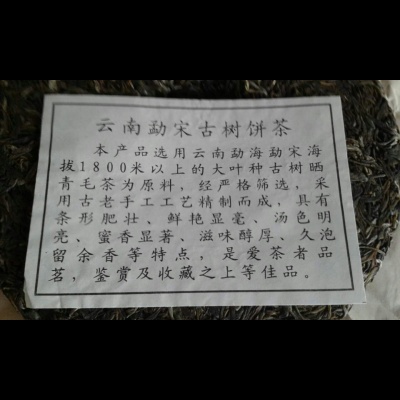 云南勐宋古树饼茶
本产品选用云南勐海勐宋海
拔1800米以上的大叶种古树晒
青毛茶为原料，经严格筛选，采
用古老手工工艺精制而成，具有
条形肥壮、鲜艳显毫、汤色明
亮、蜜香显著、滋味醇厚、久泡
留余香等特点，是爱茶者品
茗，鉴赏及收藏之上等佳品。